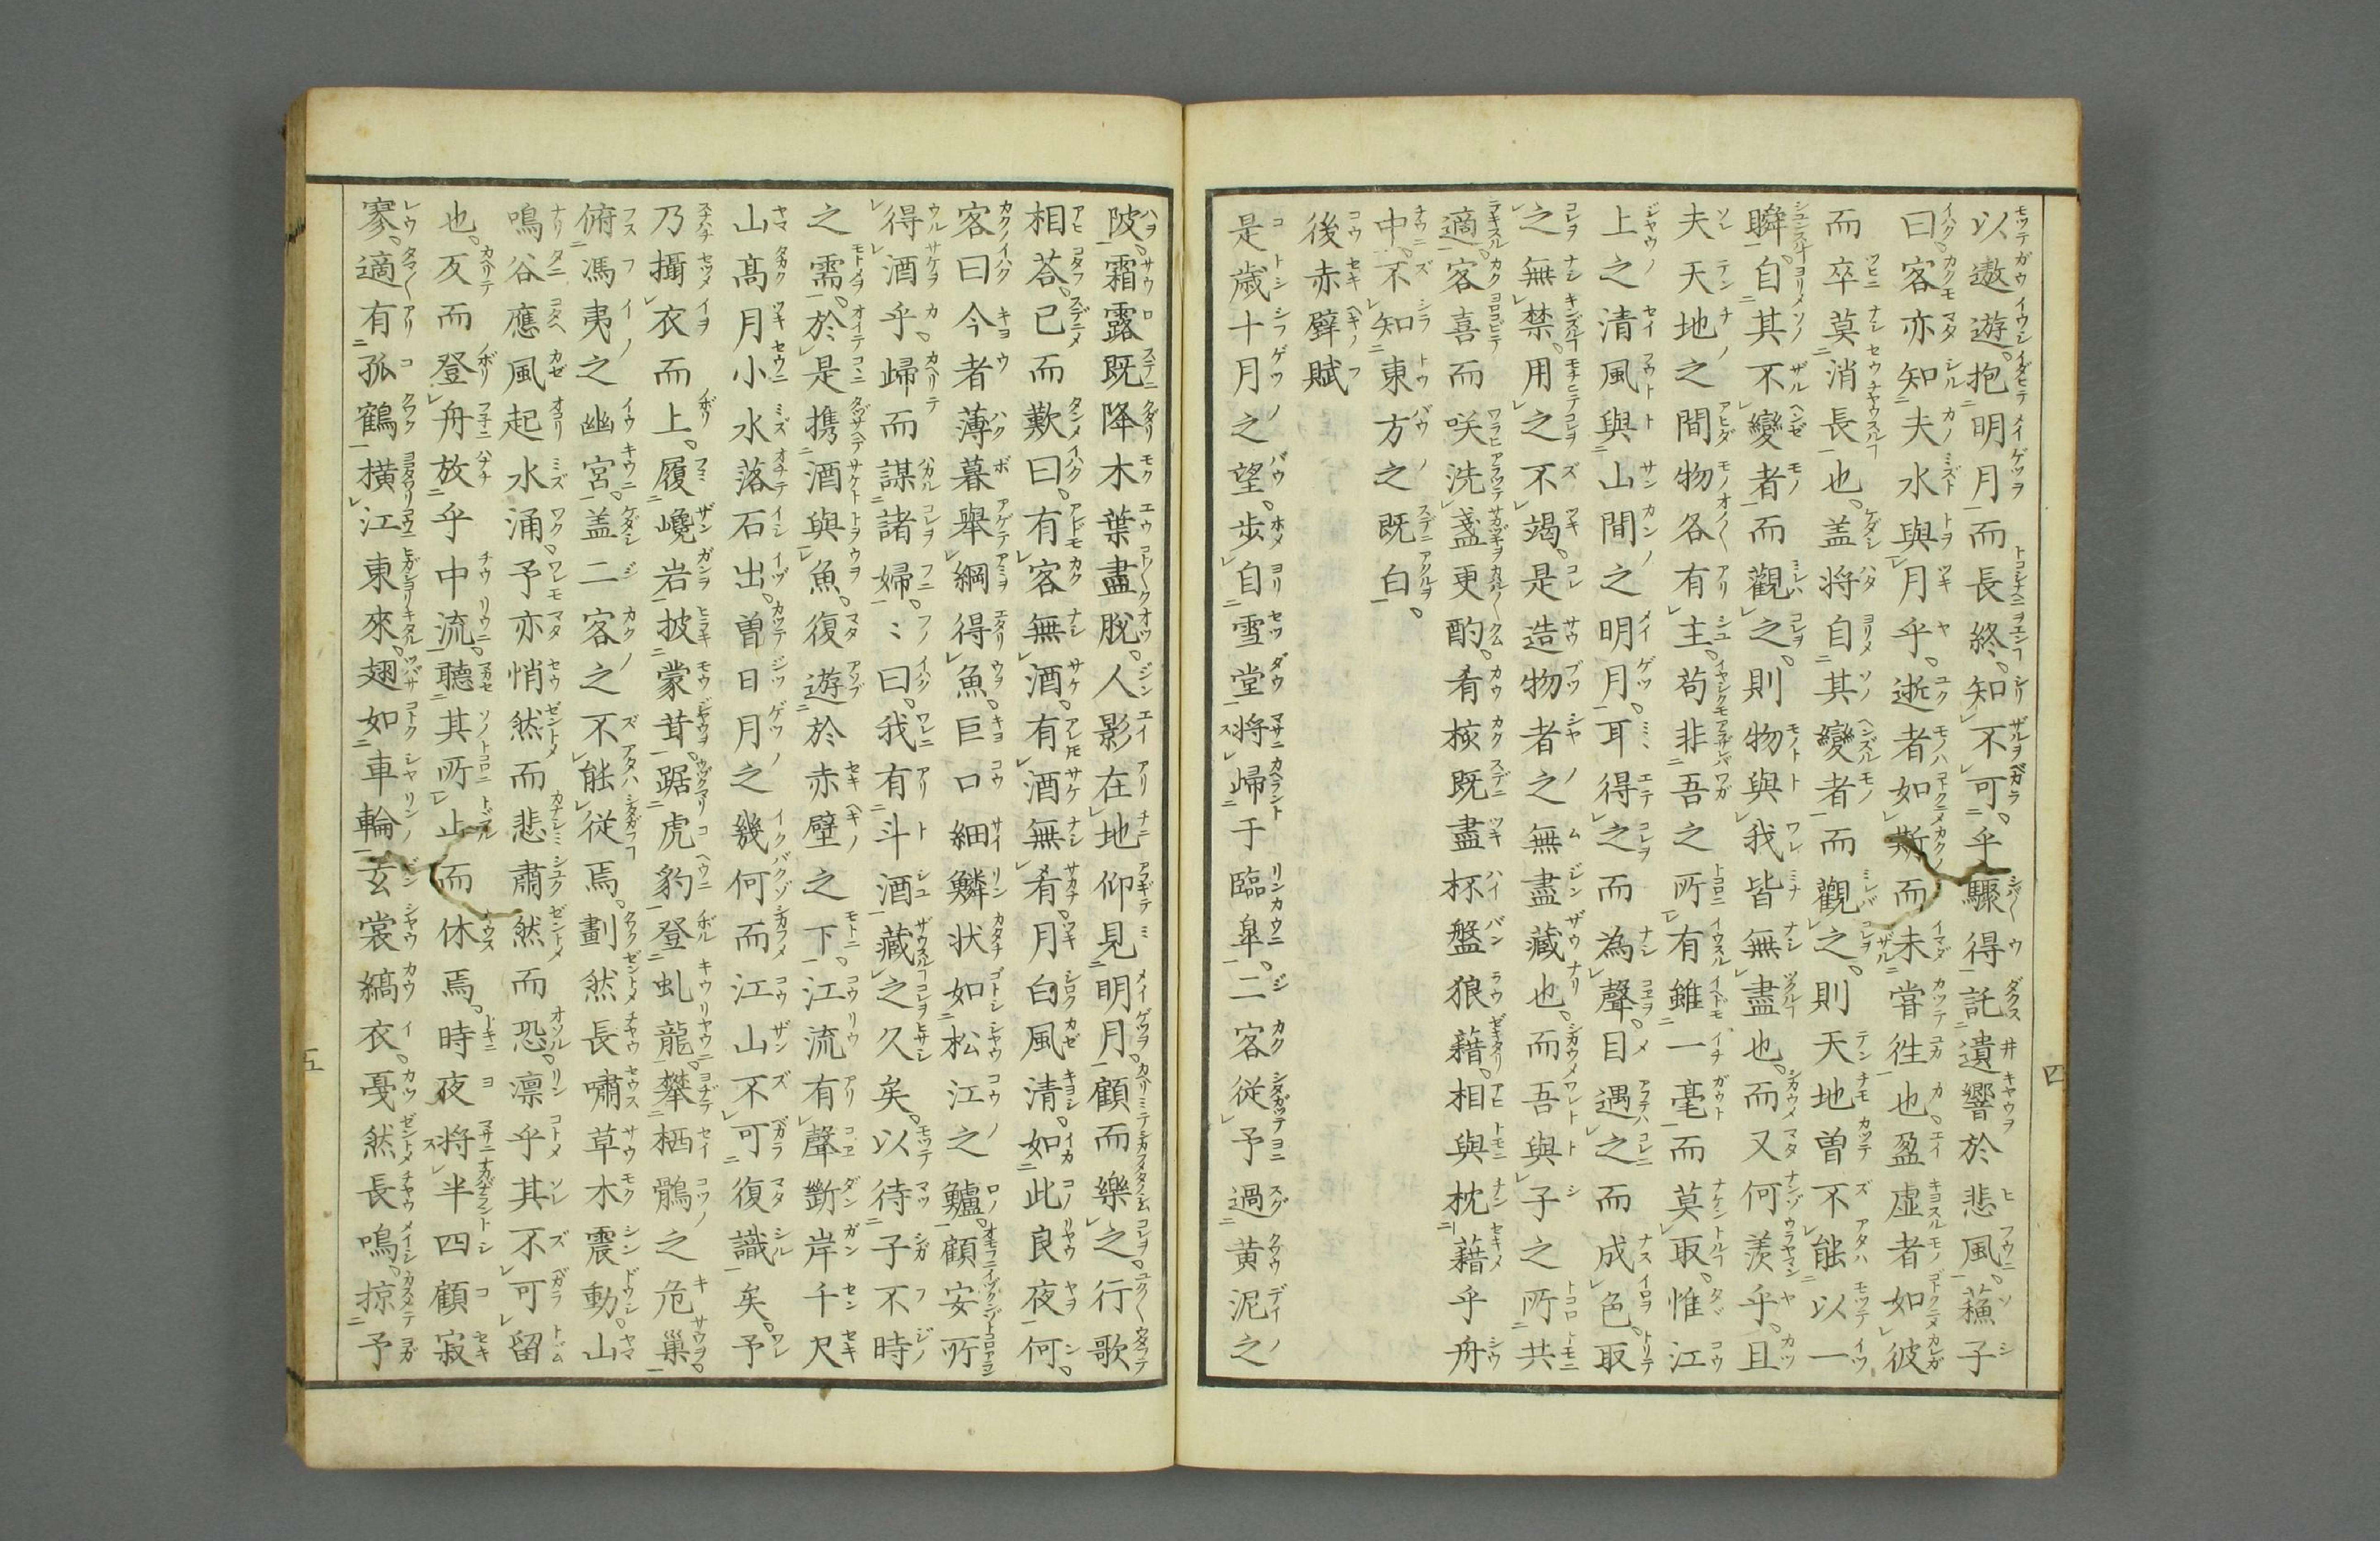 以遨遊。抱明月而長終。知不可。乎驟得託遺響於悲風。蘓子
曰。客亦知夫水與月乎。逝者如斯而未甞徃也。盈虚者如彼
而卒莫消長也。盖将自其變者而觀之。則天地曽不能以一
瞬。自其不變者而觀之。則物與我皆無盡也。而又何羨乎。且
夫天地之間物各有主。苟非吾之所有雖一毫而莫取。惟江
上之清風與山間之明月。耳得之而為聲。目遇之而成色。取
之無禁。用之不竭。是造物者之無盡藏也。而吾與子之所共
適。客喜而咲洗盞更酌。肴核既盡杯盤狼藉。相與枕藉乎舟
中。不知東方之既白。
後赤壁賦
是歳十月之望。歩自雪堂将歸于臨皐。二客従予過黄泥之
四
陂。霜露既降木葉盡脱。人影在地仰見明月。顧而樂之。行歌
相荅。已而歎曰。有客無酒。有酒無肴。月白風清。如此良夜何。
客曰今者薄暮舉網得魚。巨口細鱗状如松江之鱸。顧安所
得酒乎。歸而謀諸婦。〻曰。我有斗酒藏之久矣。以待子不時
之需。於是携酒與魚。復遊於赤壁之下。江流有聲斷岸千尺
山髙月小水落石出。曽日月之幾何而江山不可復識矣。予
乃攝衣而上。履巉岩披蒙茸。踞虎豹登虬龍。攀栖鶻之危巢。
俯馮夷之幽宮。盖二客之不能従焉。劃然長嘯草木震動。山
鳴谷應風起水涌。予亦悄然而悲肅然而恐。凛乎其不可留
也。反而登舟放乎中流。聽其所止而休焉。時夜将半四顧寂
寥。適有孤鶴横江東來。翅如車輪玄裳縞衣。戞然長鳴。掠予
五